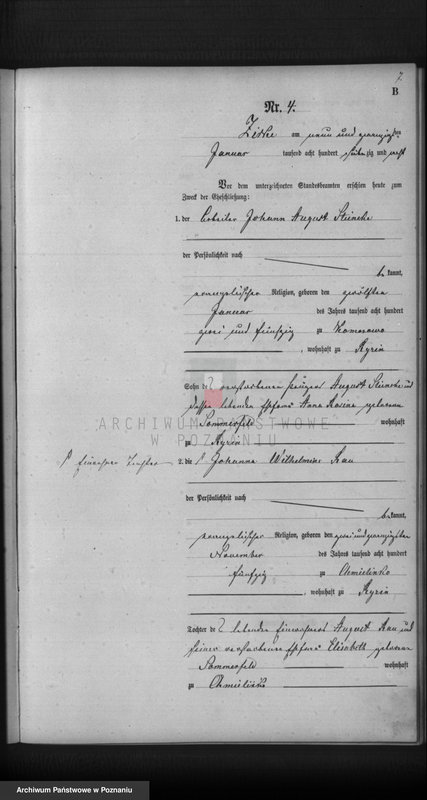 7.
B
Nr. 4.
Zirke am neun und zwanzigsten
Januar tausend acht hundert siebenzig und acht
Vor dem unterzeichneten Standesbeamten erschien heute zum
Zweck der Eheschließung:
1. der Arbeiter Johann August Steincke
der Persönlichkeit nach
bekannt,
evangelischer Religion, geboren den zwölften
Januar des Jahres tausend acht hundert
zwei und fünfzig zu Komorowo
, wohnhaft zu Kyrin
Sohn des verstorbenen August Steincke und
dessen lebenden Ehefrau Anna Rosine geborene
Sommerfeld wohnhaft
zu Kyrin
ARCHIWUM PAŃSTWOWE
W POZNANIU
Einwohner Tochter 2. die Johanna Wilhelmine Rau
der Persönlichkeit nach
bekannt,
evangelischer Religion, geboren den zwei und zwanzigsten
November des Jahres tausend acht hundert
fünfzig zu Chmielinko
, wohnhaft zu Kyrin
Tochter des lebenden Einwohners August Rau und
seiner verstorbenen Ehefrau Elisabeth geborene
Sommerfeld wohnhaft
zu Chmielinko
Archiwum Państwowe w Poznaniu